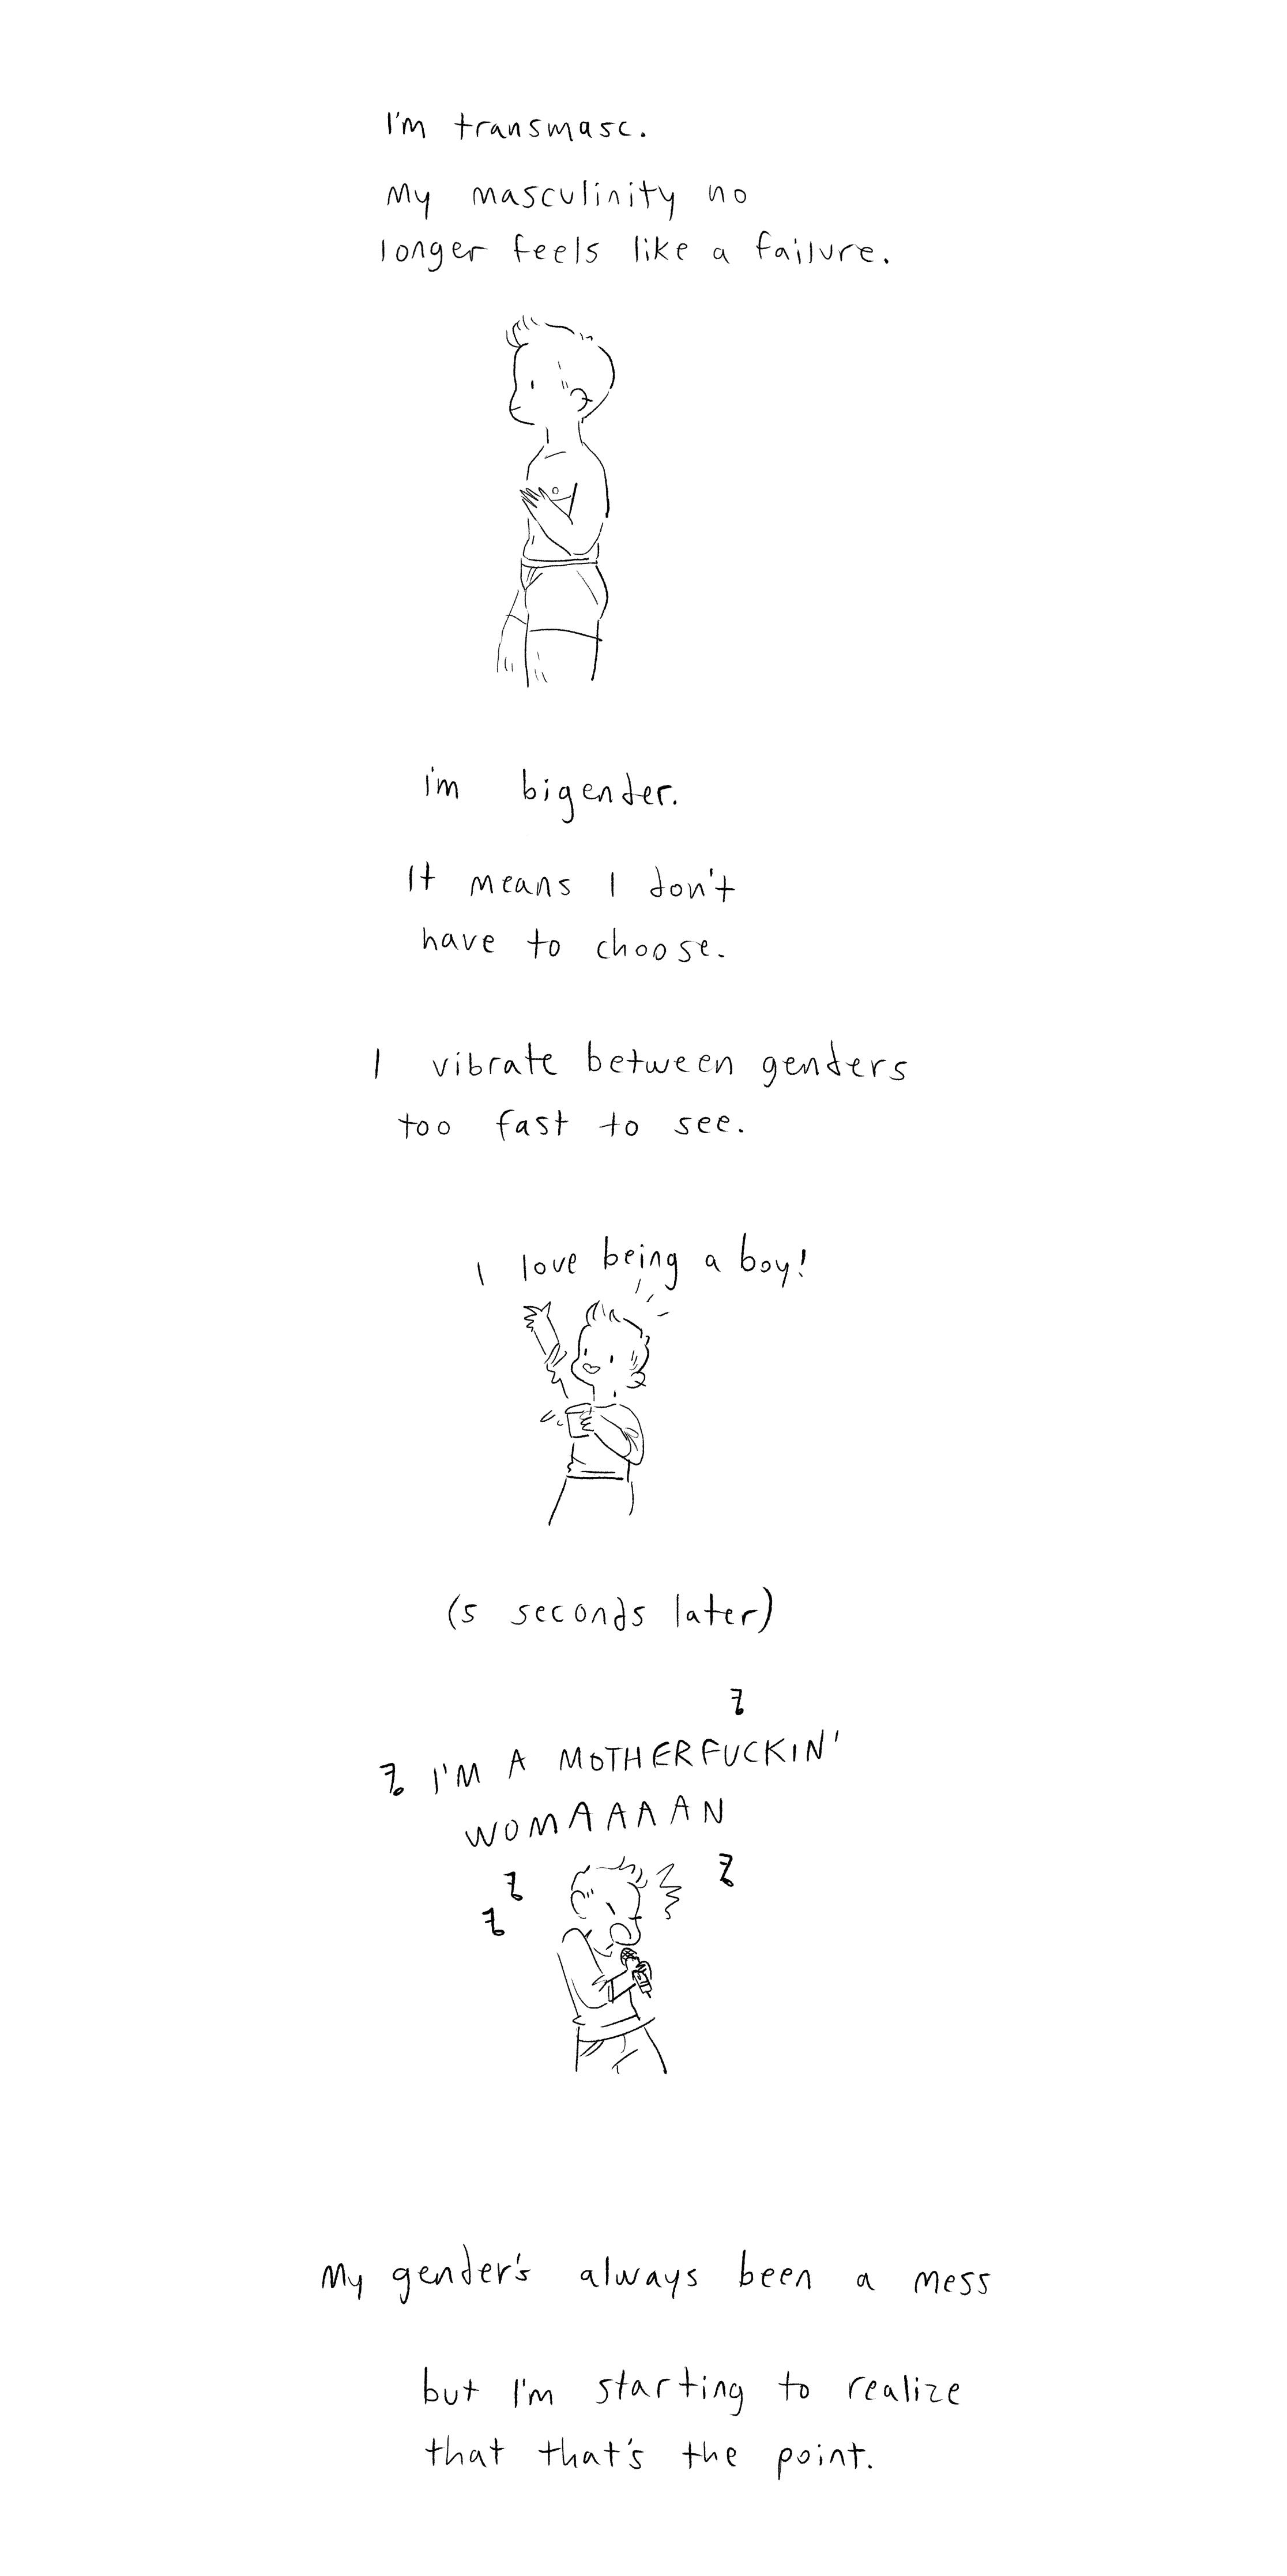 I'm transmasc.
My masculinity no
longer feels like a failure.
i'm bigender.
It means I don't
have to choose.
I vibrate between genders
too fast to see.
I love being a boy!
(5 seconds later)
I'M A MOTHERFUCKIN'
WOMAAAAN
My gender's always been a mess
but I'm starting to realize
that that's the point.